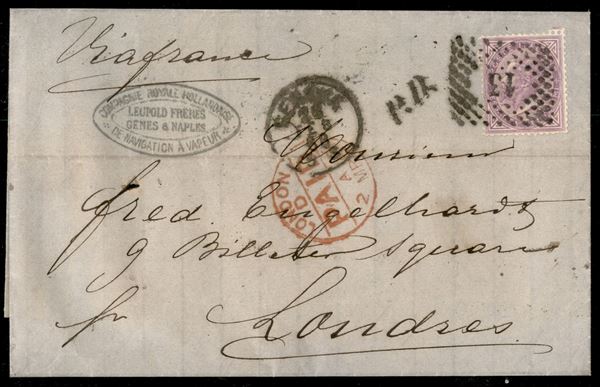 Viafrance
COMPAGNIE ROYALE HOLLANDAISE
LEUPOLD FRÈRES
GÊNES & NAPLES
DE NAVIGATION À VAPEUR
P.D.
13
LONDON
PAID
2 MA
Monsieur
fred. Engelhardt
9 Billeter Square
Londres